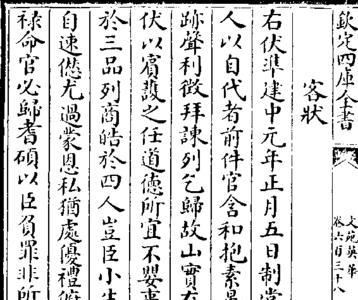 欽定四庫全書
文苑英華
卷六百三十八
客狀
右伏準建中元年正月五日制常
人以自代者前件官含和抱素
跡聲利徵拜諫列乞歸故山實
伏以賓護之任道德所宜不嬰
於三品列商皓於四人豈臣小
自速愆尤過蒙恩私猶處優禮
祿命官必歸耆碩以臣負罪非所